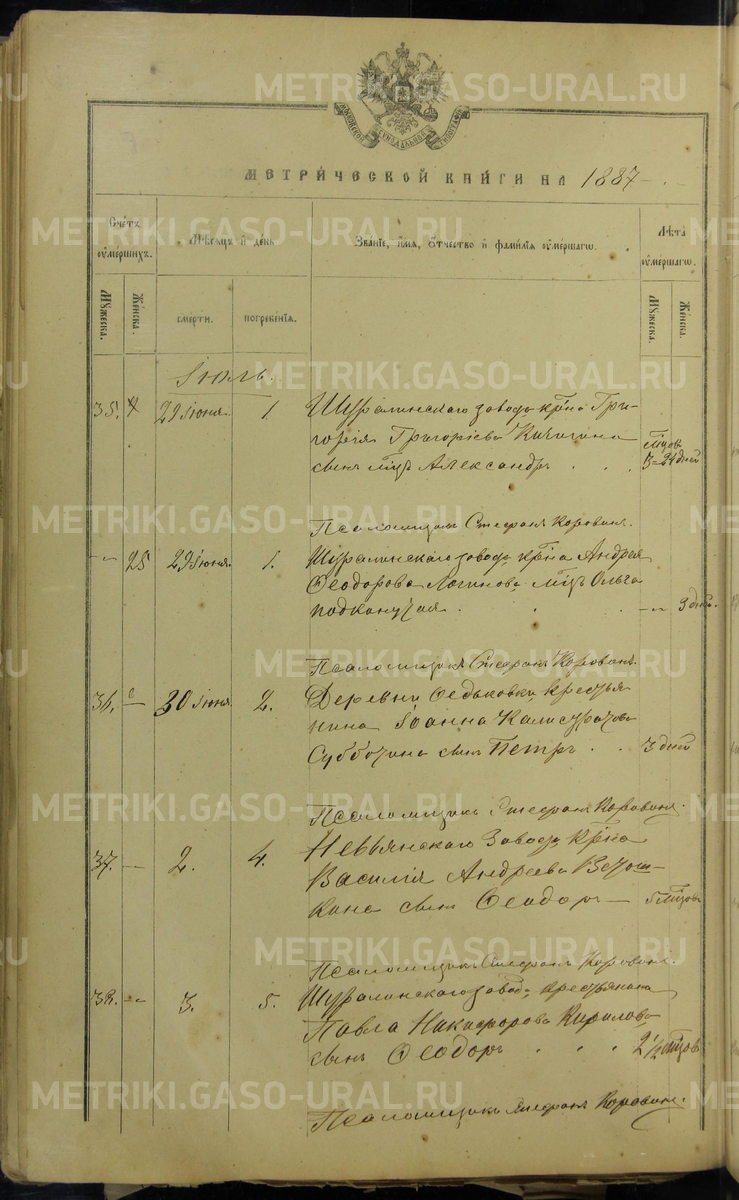 МОСКОВСКОЙ СѴНОДАЛЬНОЙ ТИПОГРАФІИ
МЕТРИ́ЧЕСКОЙ КНИ́ГИ НА 1887
Сче́тъ оумершихъ.
Мѣсяцъ и де́нь
Зва́нїе, и́мя, о́тчество и фами́лїя оумершагѡ.
Лѣта̀ оумершагѡ.
Му́жеска.
Же́нска.
смерти.
погребе́нїя.
Му́жеска.
Же́нска.
Іюль.
35. 29 Іюня. 1. Шуралинскаго завода кр҃на Гри-
горія Григорієва Кичигина
сынъ мл҃цъ Александръ . . . мѣ҃цов 3 = 24 дней
Псаломщикъ Стефанъ Коровинъ.
-"- 25 29 Іюня. 1. Шуралинскаго завода кр҃на Андрея
Ѳеодорова Логинова мл҃цъ Ольга
подканутая. -"- 3 дн.
Псаломщикъ Стефанъ Коровинъ.
36. — 30 Іюня. 2. Деревни Ѳедьковки крестья-
нина Іоанна Калистратова
Субботина сынъ Петръ . . 3 дней
Псаломщикъ Стефанъ Коровинъ.
37. — 2. 4. Невьянскаго Завода кр҃на
Василія Андреева Ветош-
кина сынъ Ѳеодоръ — 5 мѣ҃цовъ
Псаломщикъ Стефанъ Коровинъ.
38. -"- 3. 5. Шуралинскаго завода крестьянина
Павла Никифорова Кирилова
сынъ Ѳеодоръ . . . 2 1/2 мѣ҃цов
Псаломщикъ Стефанъ Коровинъ.
METRIKI.GASO-URAL.RU